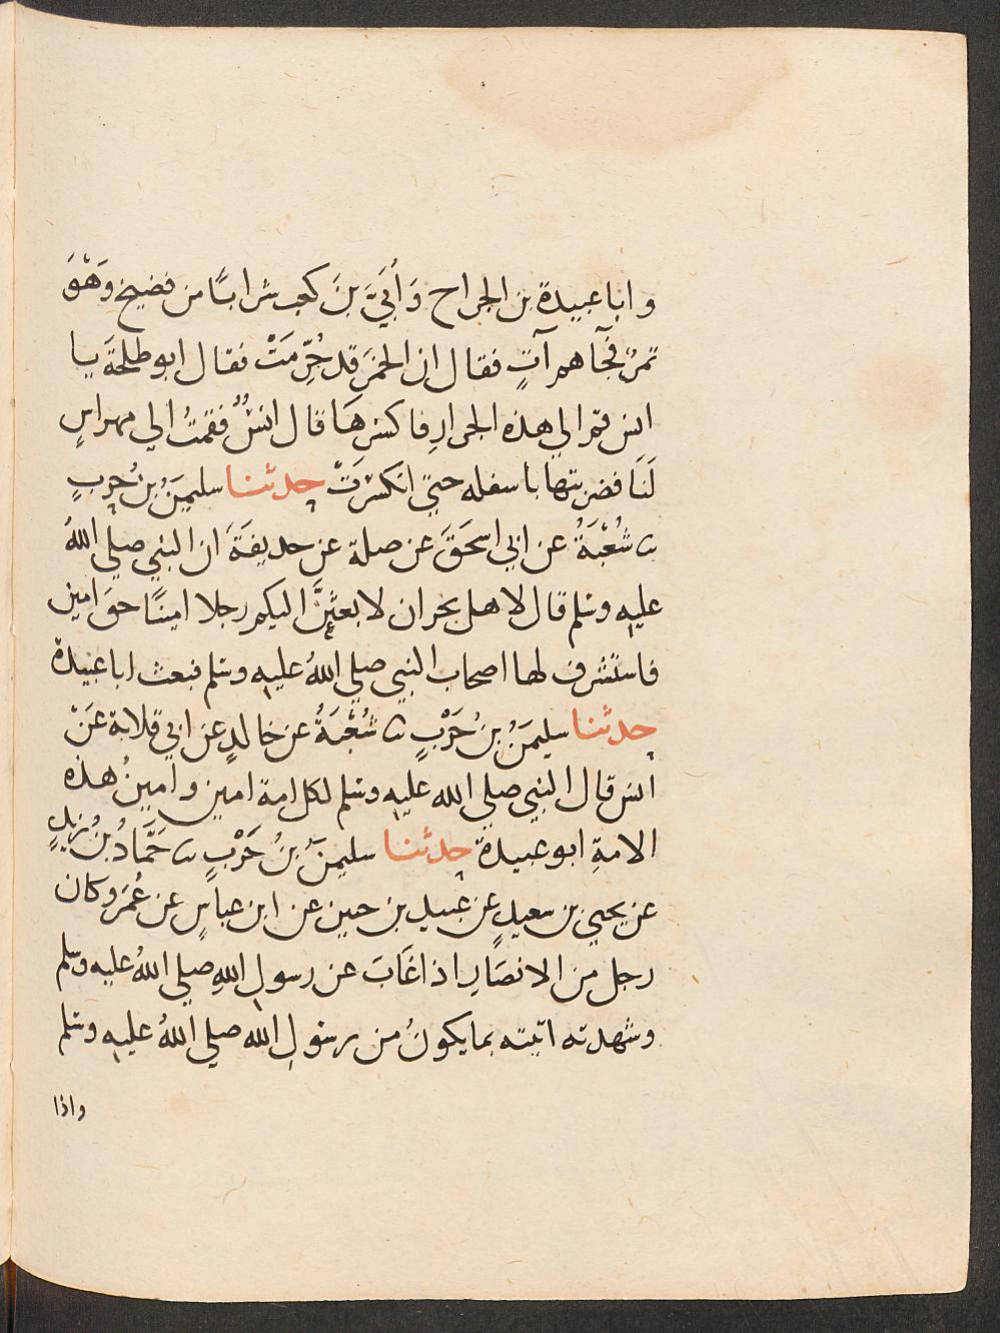 وابا عبيدة بن الجراح وَأُبَيَّ بنَ كعب شرابًا من فضيخ وَهْوَ
تمرٌ فجآهم آتٍ فقال ان الخمرَ قد حُرِّمَتْ فقال ابو طلحةَ يا
انس قم الي هذه الجرارِ فاكسرهَا قال انسٌ فقمتُ الي مهراسٍ
لَنَا فضربتها باسفله حتي انكسَرَتْ حدثنا سليمنُ بنُ حربٍ
ثنا شُعْبَةُ عن ابي اسحَقَ عن صلة عن حذيفَةَ ان النبي صلي اللهُ
عليه وسلم قال لاهل نجران لابعثنَّ اليكم رجلا امينًا حقَ امين
فاستشرف لها اصحاب النبي صلي اللهُ عليه وسلم فبعث ابا عبيدة
حدثنا سليمنُ بنُ حَرْبٍ ثنا شُعْبَةُ عن خالدٍ عن ابي قلابة عَنْ
انس قال النبي صلي الله عليه وسلم لكل امة امين وامينُ هذه
الامةِ ابو عبيدة حدثنا سليمنُ بنُ حَرْبٍ ثنا حَمَّادُ بنُ زيدٍ
عن يحيي بن سعيدٍ عن عبيد بن حنين عن ابن عباسٍ عن عُمَرَ وكان
رجل من الانصَارِ اذا غَابَ عن رسولِ اللهِ صلي اللهُ عليه وسلم
وشهدته اتيته بما يكونُ من رسولِ الله صلي اللهُ عليه وسلم
واذا